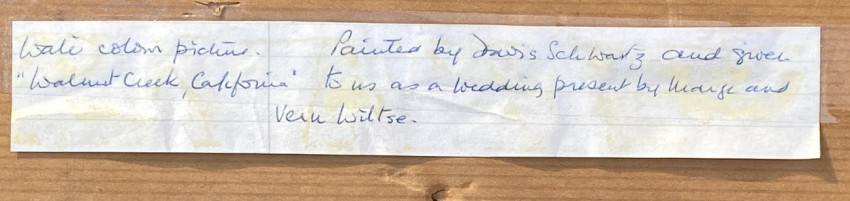 Water colour picture. Painted by Davis Schwartz and given
"Walnut Creek, California" to us as a wedding present by Marge and
Vern Wiltse.